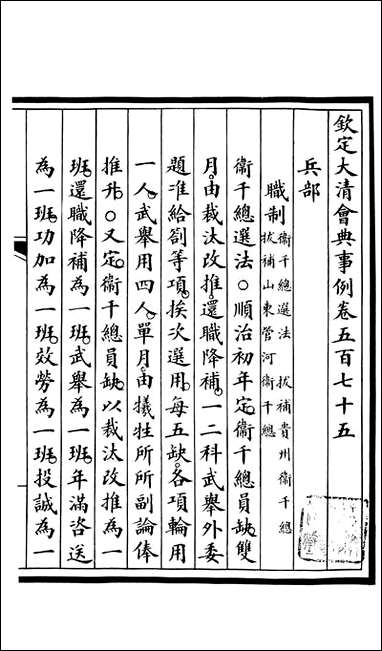 欽定大清會典事例卷五百七十五
兵部
職制
衞千總選法 拔補貴州衞千總
拔補山東管河衞千總
衞千總選法○順治初年定衞千總員缺雙
月由裁汰改推還職降補一二科武舉外委
題准給劄等項挨次選用每五缺各項輪用
一人武舉用四人單月由犧牲所所副論俸
推升○又定衞千總員缺以裁汰改推為一
班還職降補為一班武舉為一班年滿咨送
為一班功加為一班效勞為一班投誠為一